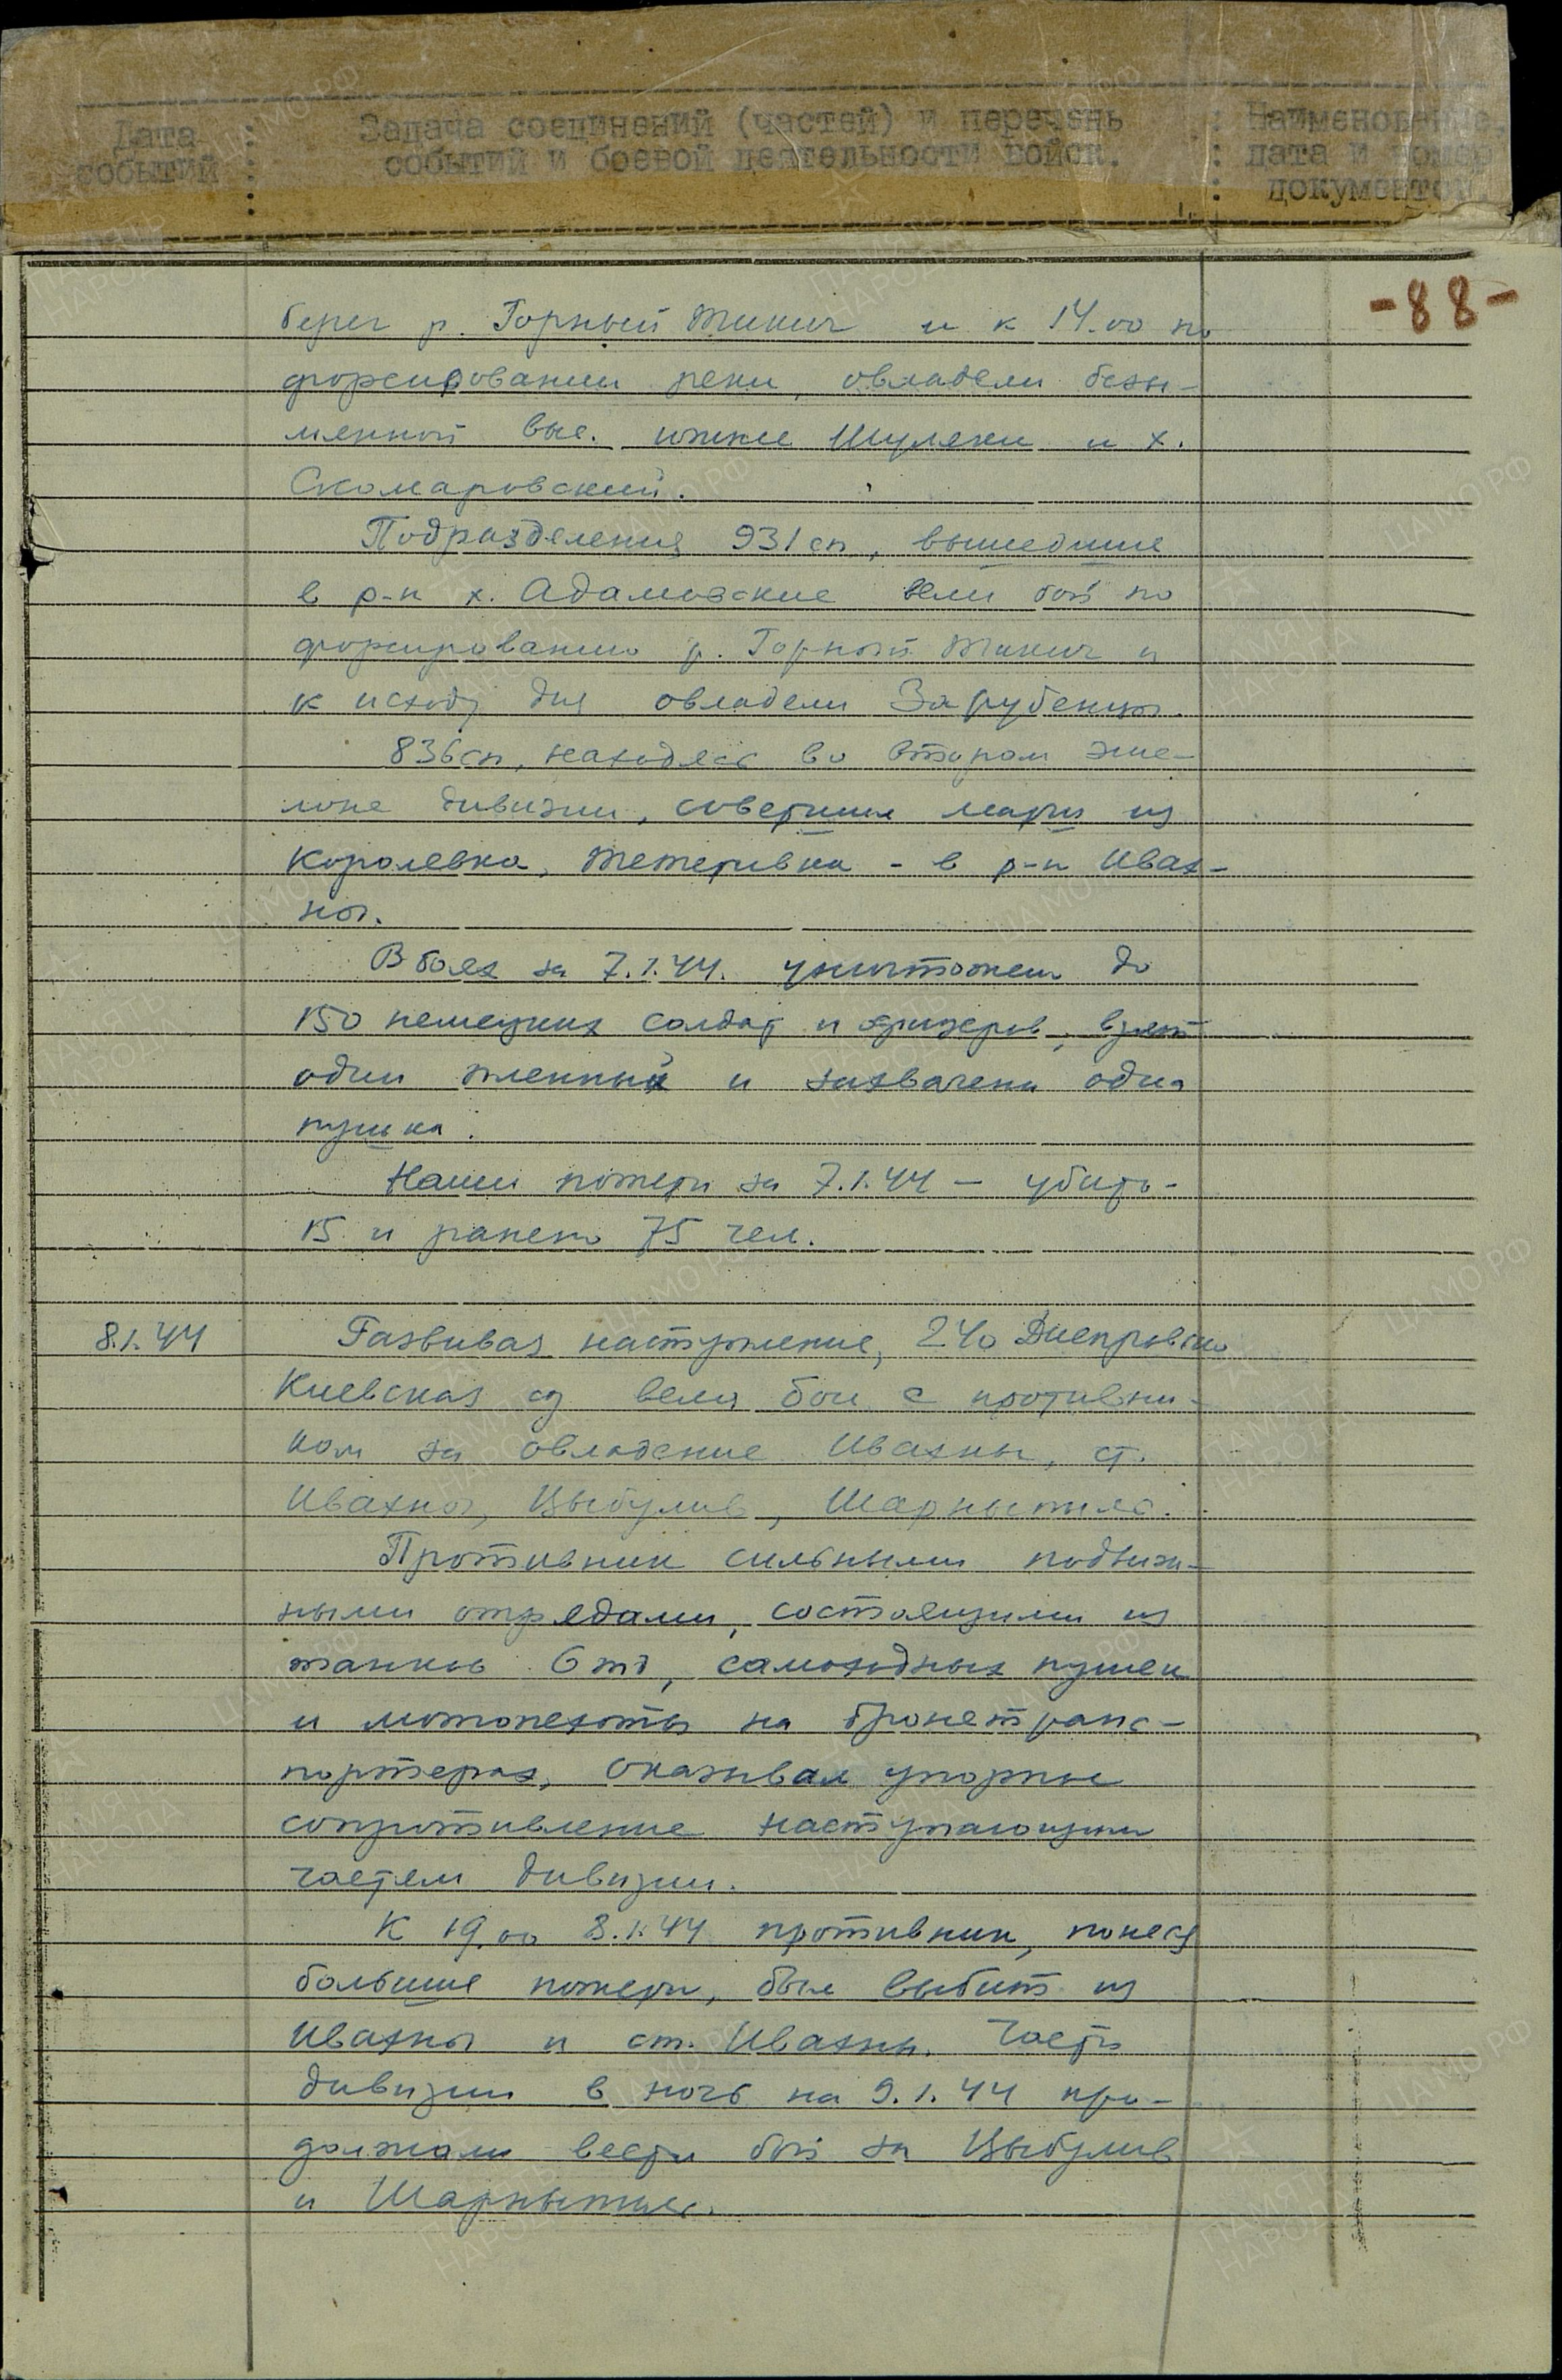 Дата событий : Задача соединений (частей) и перечень событий и боевой деятельности войск. : Наименование, дата и номер документов.
-88-
берег р. Горный Тикич и к 14.00 по
форсировании реки, овладели безы-
мянной выс. южнее Шуляки и х.
Скомаровский.
Подразделения 931 сп, вышедшие
в р-н х. Адамовские вели бой по
форсированию р. Горный Тикич и
к исходу дня овладели Зарубенцы.
836 сп, находясь во втором эше-
лоне дивизии, совершил марш из
Королевка, Тетеривка - в р-н Ивах-
ны.
В боях за 7.1.44. уничтожен до
150 немецких солдат и офицеров, взят
один пленный и захвачена одна
пушка.
Наши потери за 7.1.44 — убито-
15 и ранено 75 чел.
8.1.44
Развивая наступление, 240 Днепровско
Киевская сд вела бои с противни-
ком за овладение Ивахны, ст.
Ивахны, Цыбулив, Шарныпиль.
Противник сильными подвиж-
ными отрядами, состоящими из
танков 6 тд, самоходных пушек
и мотопехоты на бронетранс-
портерах, оказывал упорное
сопротивление наступающим
частям дивизии.
К 19.00 8.1.44 противник, понеся
большие потери, был выбит из
Ивахны и ст. Ивахны. Части
дивизии в ночь на 9.1.44 про-
должали вести бой за Цыбулив
и Шарныпиль.